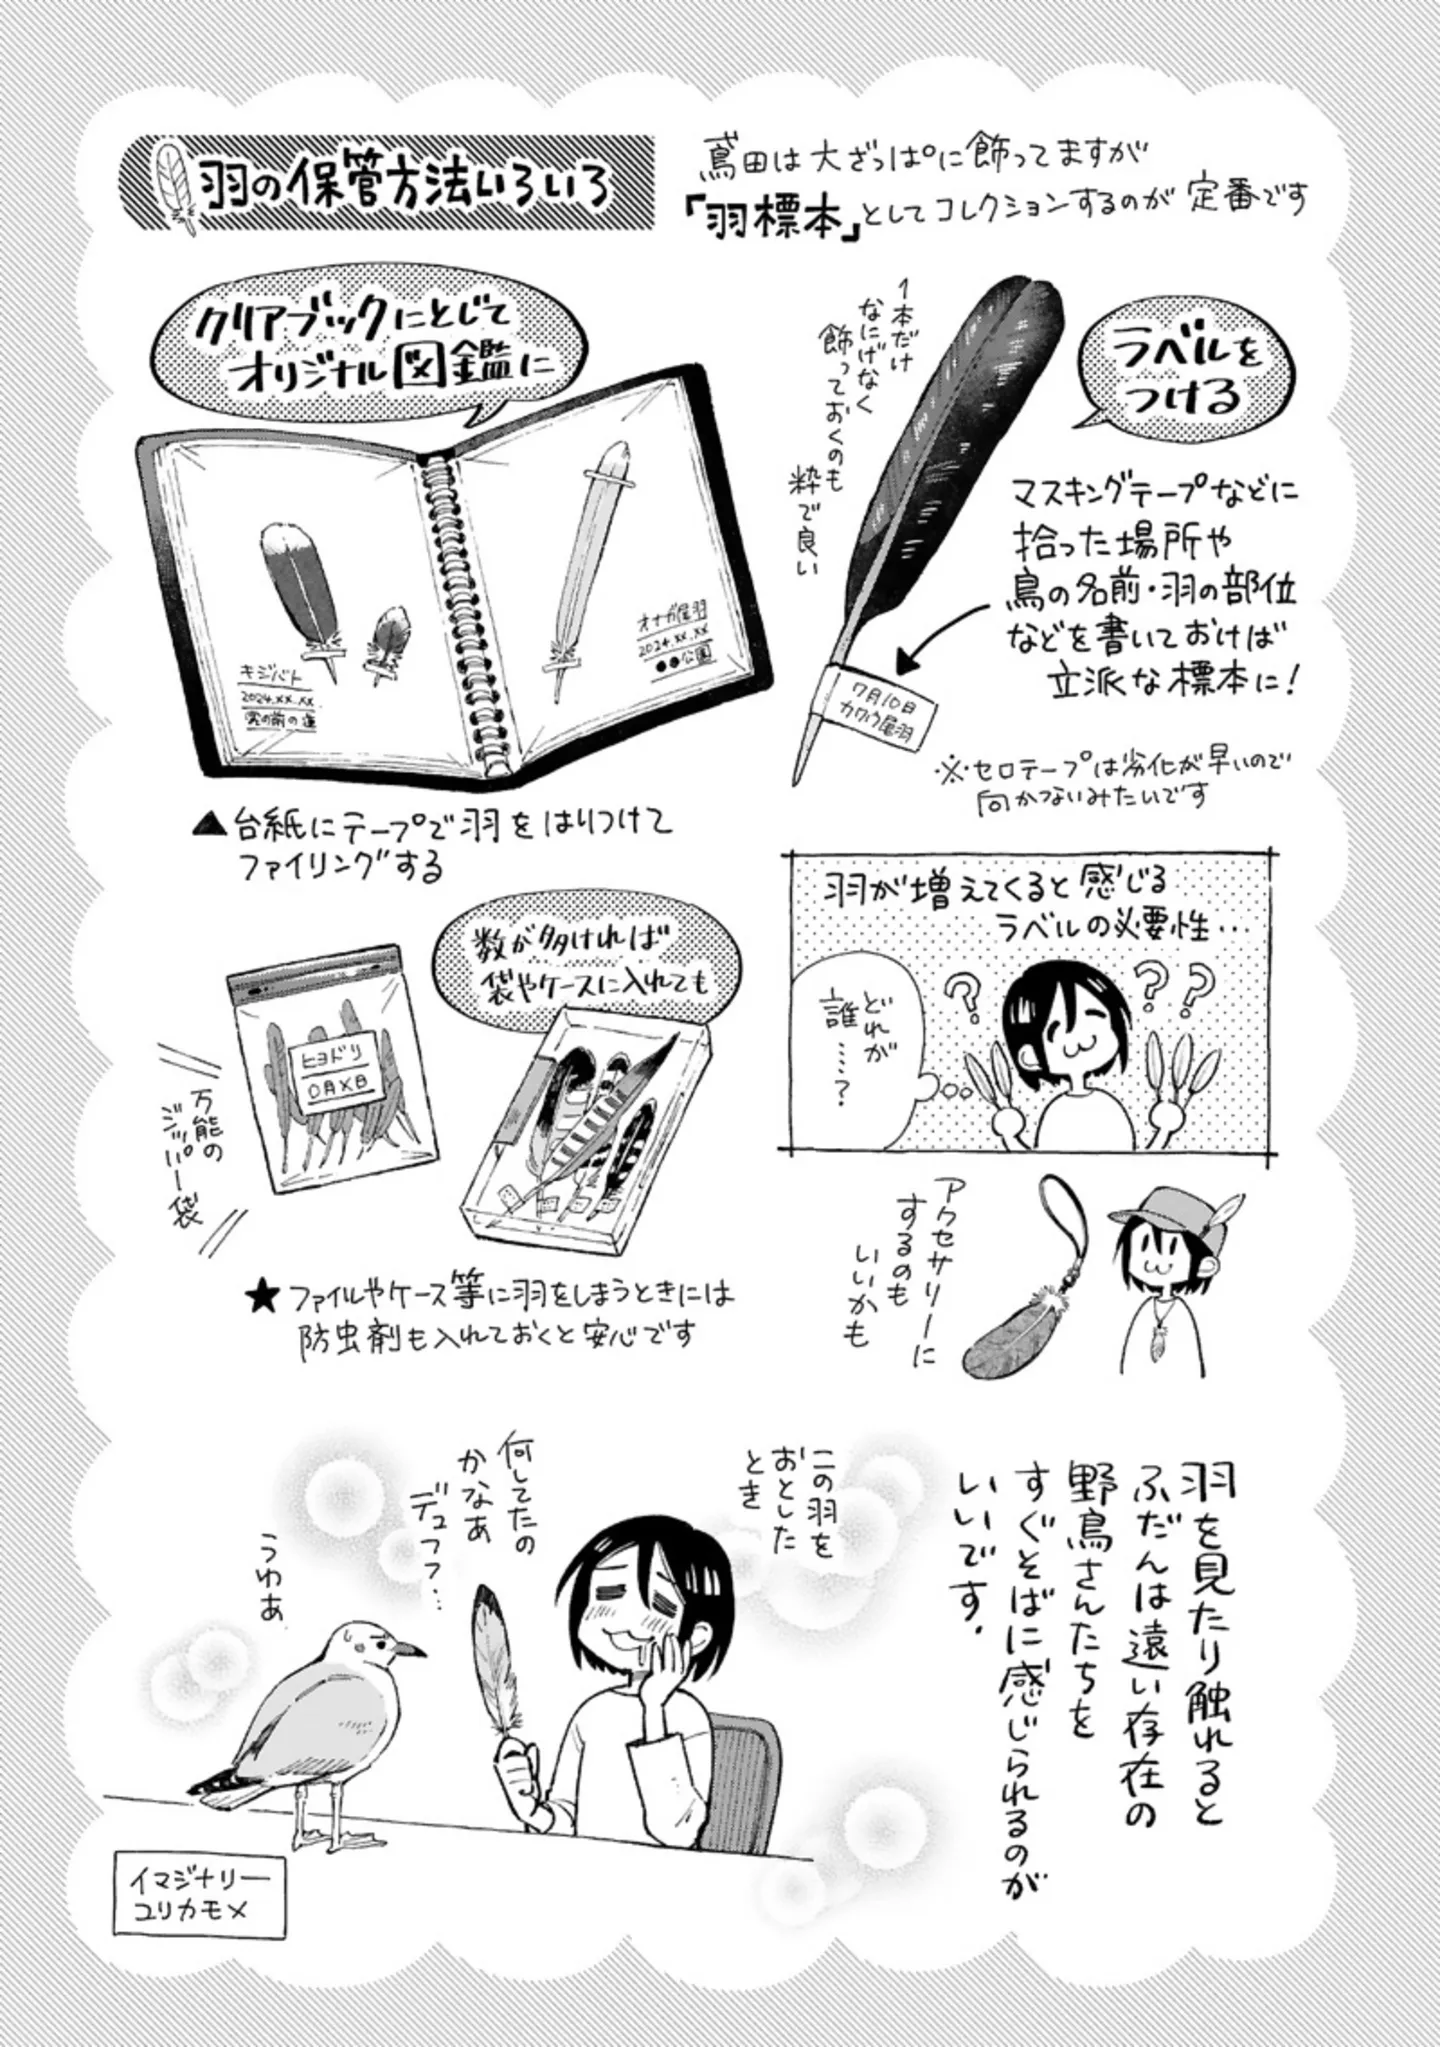 羽の保管方法いろいろ
鳶田は大ざっぱに飾ってますが
「羽標本」としてコレクションするのが定番です
クリアブックにとじて
オリジナル図鑑に
キジバト
2024.xx.xx.
家の前の道
オナガ尾羽
2024.xx.xx
●●公園
▲台紙にテープで羽をはりつけて
ファイリングする
1本だけ
なにげなく
飾っておくのも
粋で良い
ラベルを
つける
マスキングテープなどに
拾った場所や
鳥の名前・羽の部位
などを書いておけば
立派な標本に!
7月10日
カワウ尾羽
※セロテープは劣化が早いので
向かないみたいです
数が多ければ
袋やケースに入れても
ヒヨドリ
○月×日
万能の
ジッパー袋
★ファイルやケース等に羽をしまうときには
防虫剤も入れておくと安心です
羽が増えてくると感じる
ラベルの必要性…
?
? ?
どれが
誰……?
アクセサリーに
するのも
いいかも
羽を見たり触れると
ふだんは遠い存在の
野鳥さんたちを
すぐそばに感じられるのが
いいです。
この羽を
おとした
とき
何してたの
かなあ
デュフフ…
うわぁ
イマジナリー
ユリカモメ